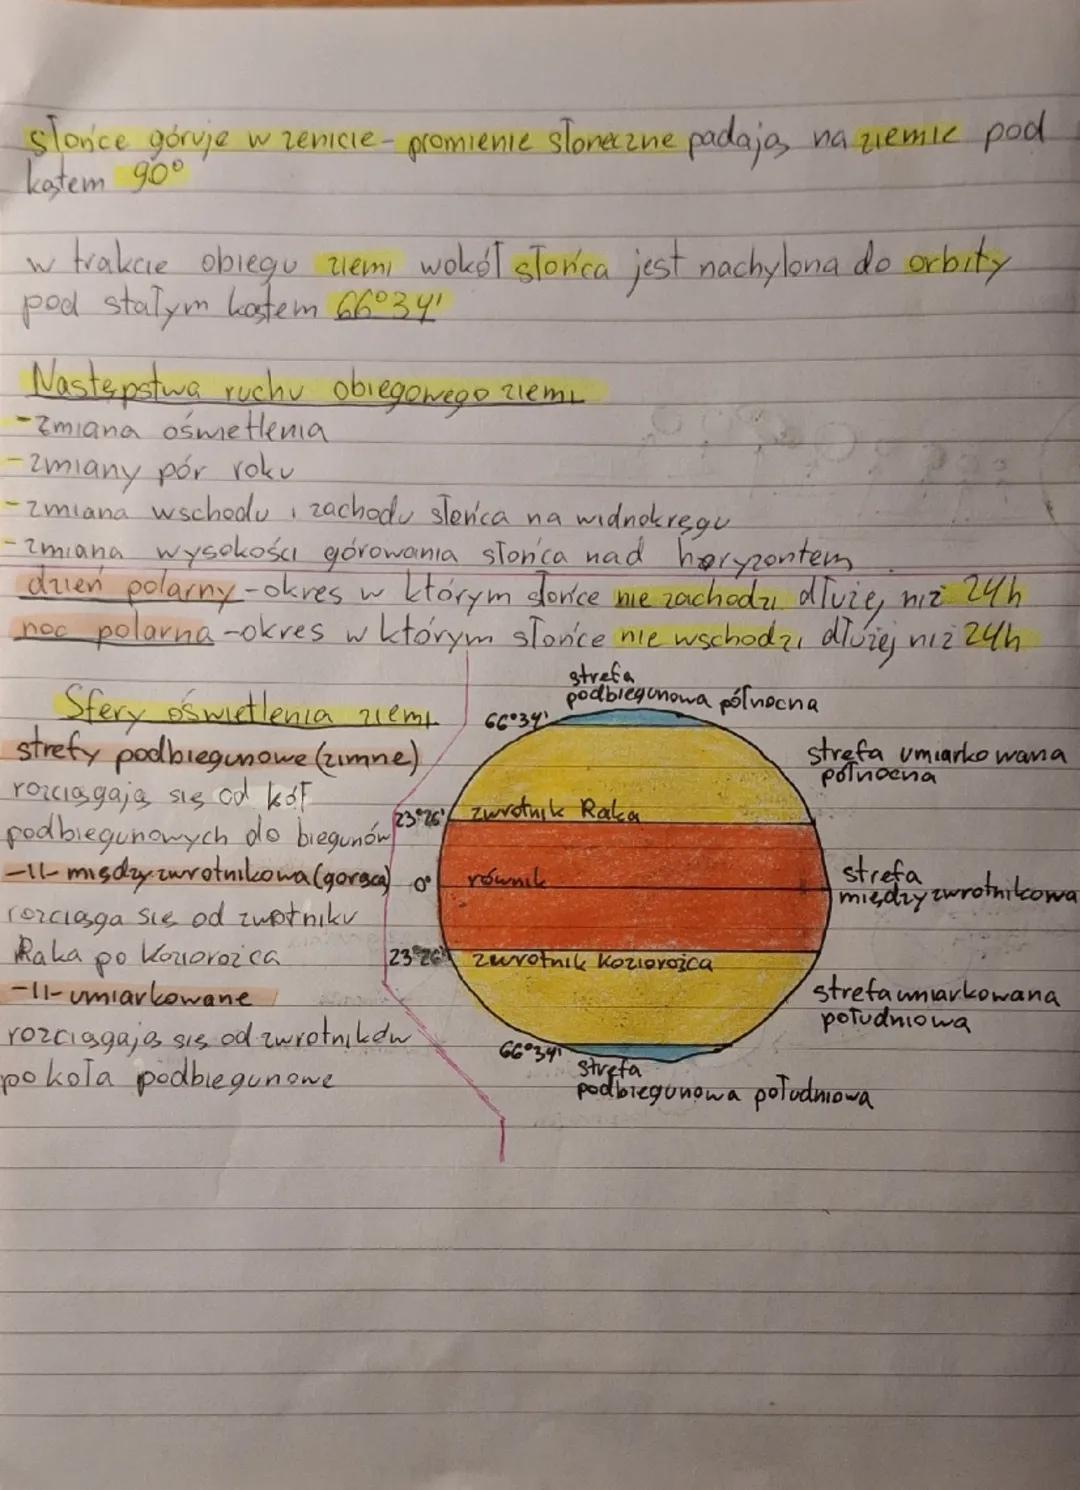 słońce góruje w zenicie - promienie słoneczne padają na ziemie pod
kątem 90°
w trakcie obiegu ziemi wokół słońca jest nachylona do orbity
pod stałym kątem 66°34'
Następstwa ruchu obiegowego ziemi
- zmiana oświetlenia
- zmiany pór roku
- zmiana wschodu i zachodu słońca na widnokręgu
- zmiana wysokości górowania słońca nad horyzontem
dzień polarny - okres w którym słońce nie zachodzi dłużej niż 24h
noc polarna - okres w którym słońce nie wschodzi dłużej niż 24h
Sfery oświetlenia ziemi
strefy podbiegunowe (zimne)
rozciągają się od kół
podbiegunowych do biegunów
-11- międzyzwrotnikowa (gorąca)
rozciąga się od zwrotniku
Raka po Koziorożca
-11- umiarkowane
rozciągają się od zwrotników
po koła podbiegunowe
strefa
podbiegunowa północna
66°34'
strefa umiarkowana
północna
23°26' zwrotnik Raka
0° równik
strefa
międzyzwrotnikowa
23°26' zwrotnik Koziorożca
strefa umiarkowana
południowa
66°34'
strefa
podbiegunowa południowa